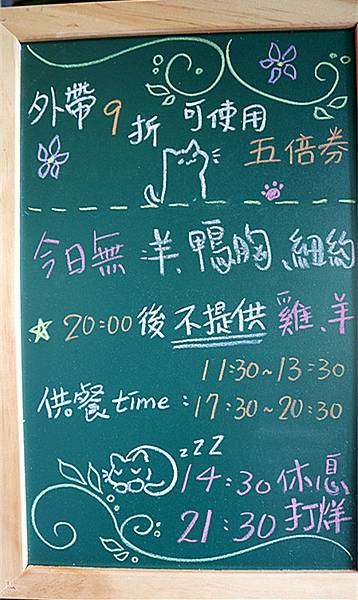 外帶9折 可使用
五倍券
今日無 羊、鴨胸、紐約
20:00後不提供雞、羊
11:30~13:30
供餐time:17:30~20:30
zzz
14:30休息
21:30打烊